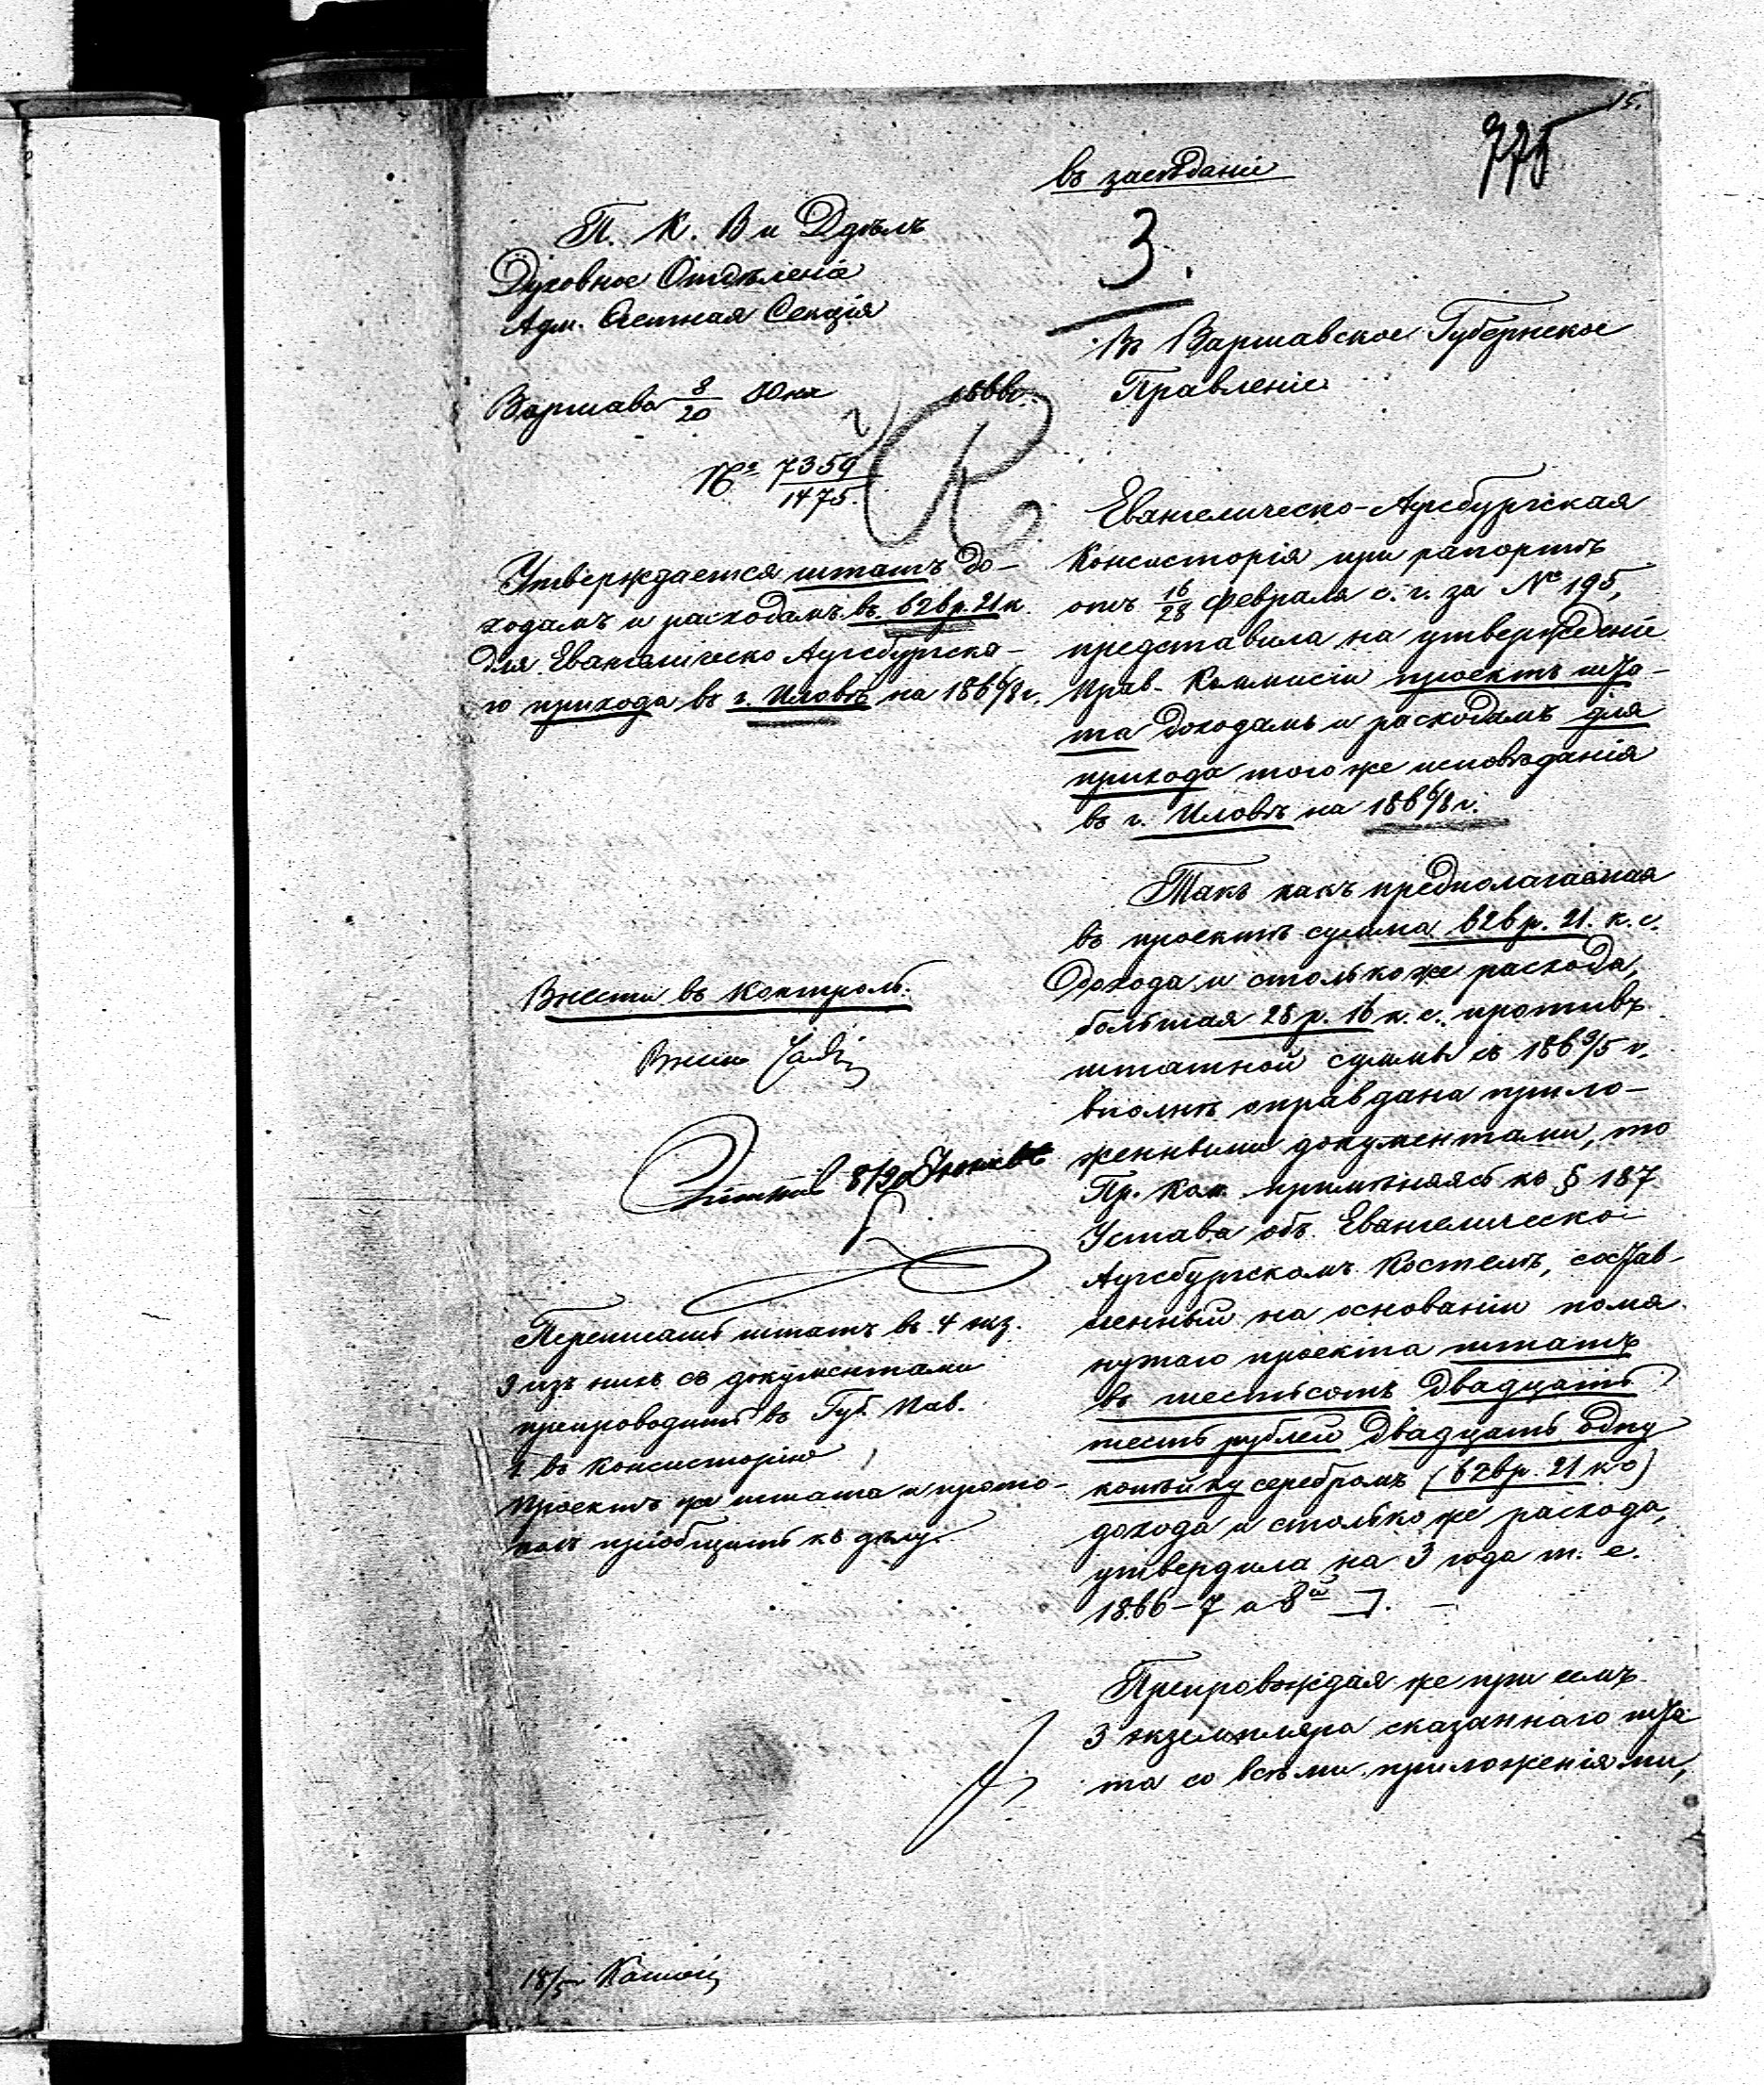 15.
775
въ засѣданіе
3.
П. К. В и Д дѣлъ
Духовное Отдѣленіе
Адм. Счетная Секція
Варшава 8/20 Юня 1866 г.
№ 7359/1475.
Утверждается штатъ до-
ходамъ и расходамъ въ 626 р. 21 к.
для Евангелическо Аугсбургска-
го прихода въ г. Иловѣ на 1866/8 г.
Внести въ контроль.
8/20 Юня 66
Переписать штатъ въ 4 экз.
3 изъ нихъ съ документами
препроводить въ Губ. Прав.
1. въ консисторію
Проектъ же штата и прото-
колъ пріобщить къ дѣлу.
18/5
Въ Варшавское Губернское
Правленіе
Евангелическо-Аугсбургская
Консисторія при рапортѣ
отъ 16/28 февраля с. г. за № 195,
представила на утвержденіе
Прав. Коммисіи проектъ шта-
та доходамъ и расходамъ для
прихода того же исповѣданія
въ г. Иловѣ на 1866/8 г.
Такъ какъ предполагаемая
въ проектѣ сумма 626 р. 21. к. с.
дохода и столько же расхода,
большая 25 р. 16 к. с. противъ
штатной суммы съ 1863/5 г.
вполнѣ оправдана прило-
женными документами, то
Пр. Ком. примѣняясь ко § 187
Устава объ Евангелическо
Аугсбургскомъ Костелѣ, состав-
ленный на основаніи помя
нутаго проекта штатъ
въ шестьсотъ двадцать
шесть рублей двадцать одну
копѣйку серебромъ (626 р. 21 к с)
дохода и столько же расхода,
утвердила на 3 года т. е.
1866–7 и 8й
Препровождая же при семъ
3 экземпляра сказаннаго шта
та со всѣми приложеніями,